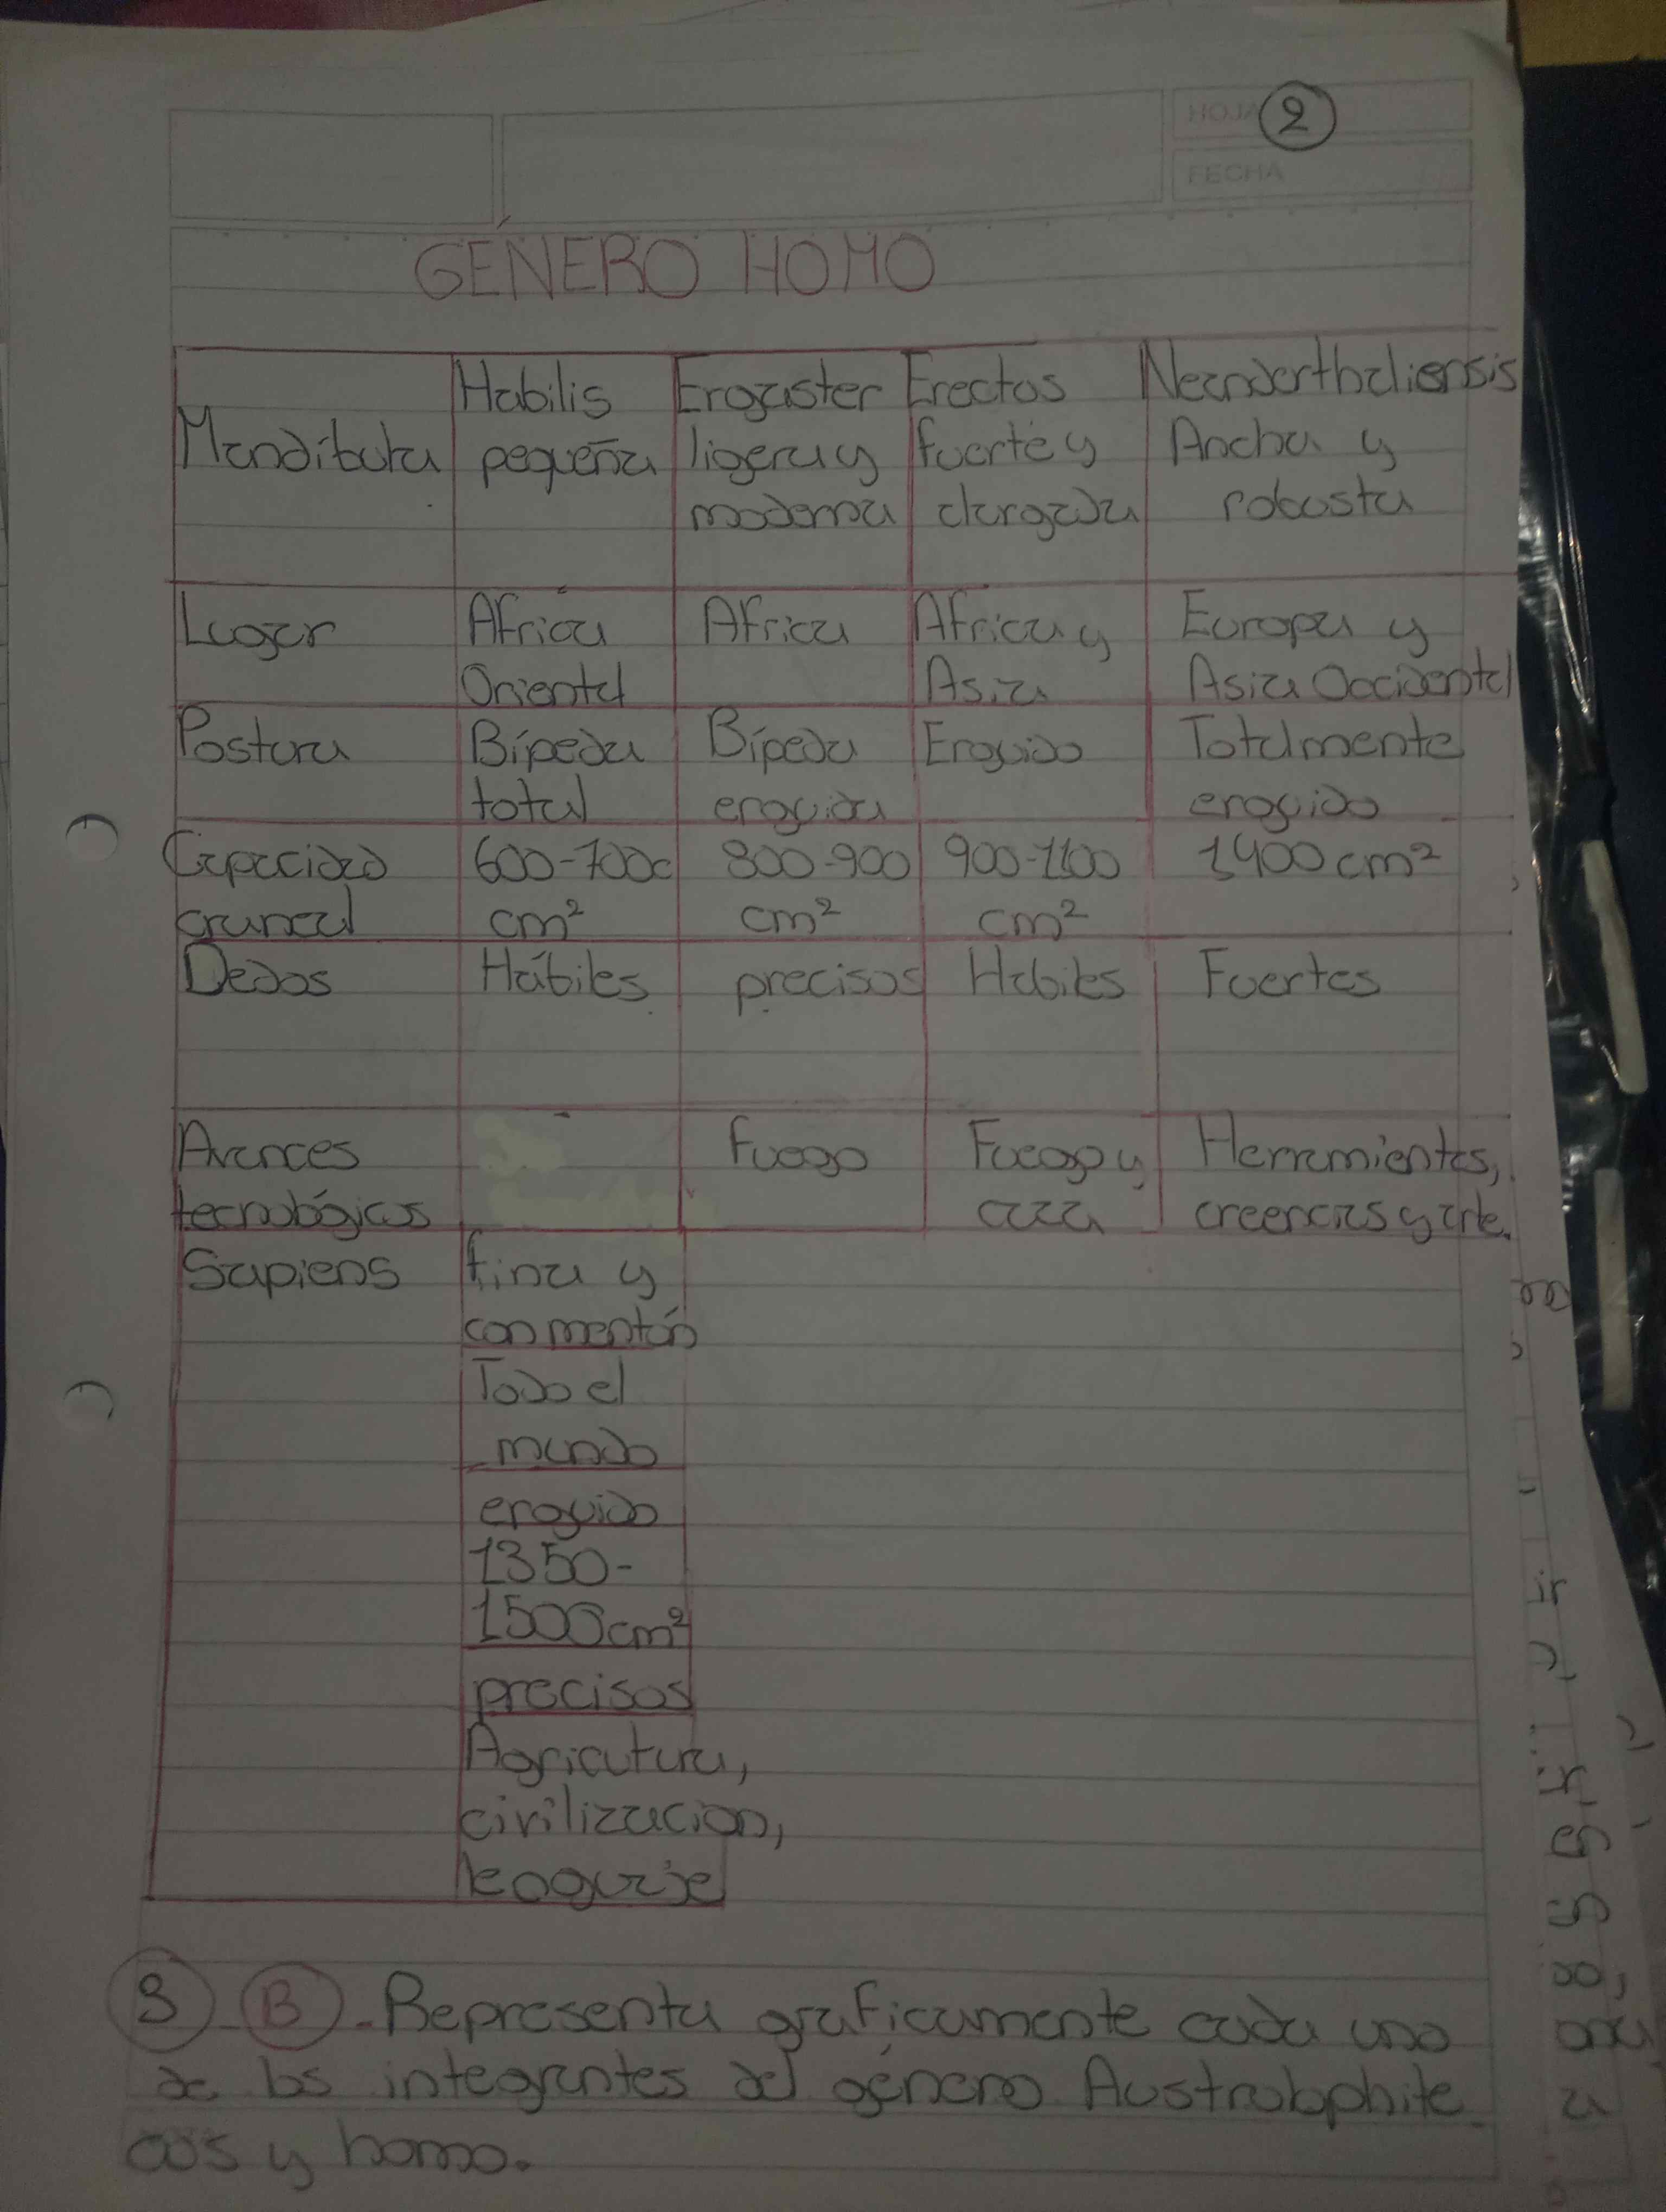 HOJA 2
FECHA
GÉNERO HOMO
Habilis Ergaster Erectos Neanderthaliensis
Mandibula pequeña ligera y fuerte y Ancha y
moderna alargada robusta
Lugar Africa Africa Africa y Europa y
Oriental Asia Asia Occidental
Postura Bípeda Bípeda Erguido Totalmente
total erguida erguido
Capacidad 600-700 800-900 900-1100 1400 cm²
craneal cm² cm² cm²
Dedos Hábiles precisos Habiles Fuertes
Avances Fuego Fuego y Herramientas,
tecnológicos caza creencias y arte.
Sapiens fina y
con mentón
Todo el
mundo
erguido
1350-
1500 cm²
precisos
Agricutura,
civilizacion,
lenguaje
3 B. Representa graficamente cada uno
de los integrantes del género Australophite
cus y homo.